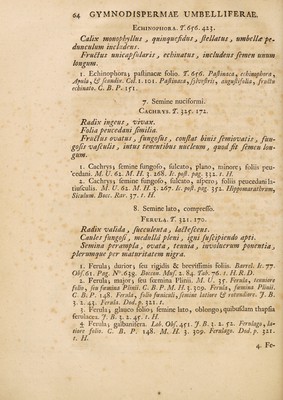 64 GYMNODISPERMAE UMBELLIFERAE.
ECHINOPHORA. T. 656. 423.
Calix monophyllus, quinquefidus, stellatus, umbellæ pe-
dunculum includens.
Fructus unicapsularis, echinatus, includens semen unum
longum.
1. Echinophora; pastinacæ folio. T. 656. Pastinaca, echinophora,
Apula, & scandix. Col. 1. 101. Pastinaca, sylvestris, angustifolia, fructu
echinato. C. B. P. 151.
7. Semine nuciformi.
CACHRYS. T. 325. 172.
Radix ingens, vivax.
Folia peucedani similia.
Fructus ovatus, fungosus, constat binis semiovatis, fun-
gosis vasculis, intus tenentibus nucleum, quod sit semen lon-
gum.
1. Cachrys; semine fungoso, sulcato, plano, minore; foliis peu-
cedani. M. U. 62. M. H. 3. 268. Ic. post. pag. 332. t. H.
2. Cachrys; semine fungoso, sulcato, aspero, foliis peucedani la-
tiusculis. M. U. 62. M. H. 3. 267. Ic. post. pag. 352. Hippomarathrum,
Siculum. Bocc. Rar. 37. t. H.
8. Semine lato, compresso.
FERULA. T. 321. 170.
Radix valida, succulenta, lactescens.
Caules fungosi, medullâ pleni, igni suscipiendo apti.
Semina perampla, ovata, tenuia, involucrum ponentia,
plerumque per maturitatem nigra.
1. Ferula; durior; seu rigidis & brevissimis foliis. Barrel. Ic. 77.
Obs. 61. Pag. N°. 639. Boccon. Mus. 2. 84. Tab. 76. t. H. R. D.
2. Ferula; major; seu fœmina Plinii. M. U. 35. Ferula, tenuiore
folio, seu fœmina Plinii. C. B. P. M. H. 3. 309. Ferula, fœmina Plinii.
C. B. P. 148. Ferula, folio fœniculi, semine latiore & rotundiore. J. B.
3. 2. 43. Ferula. Dod. p. 321. t.
3. Ferula; glauco folio; semine lato, oblongo; quibusdam thapsia
ferulacea. J. B. 3. 2. 45. t. H.
4. Ferula; galbanifera. Lob. Obs. 451. J. B. 3. 2. 52. Ferulago, la-
tiore folio. C. B. P. 148. M. H. 3. 309. Ferulago. Dod. p. 321.
t. H.
4. Fe-